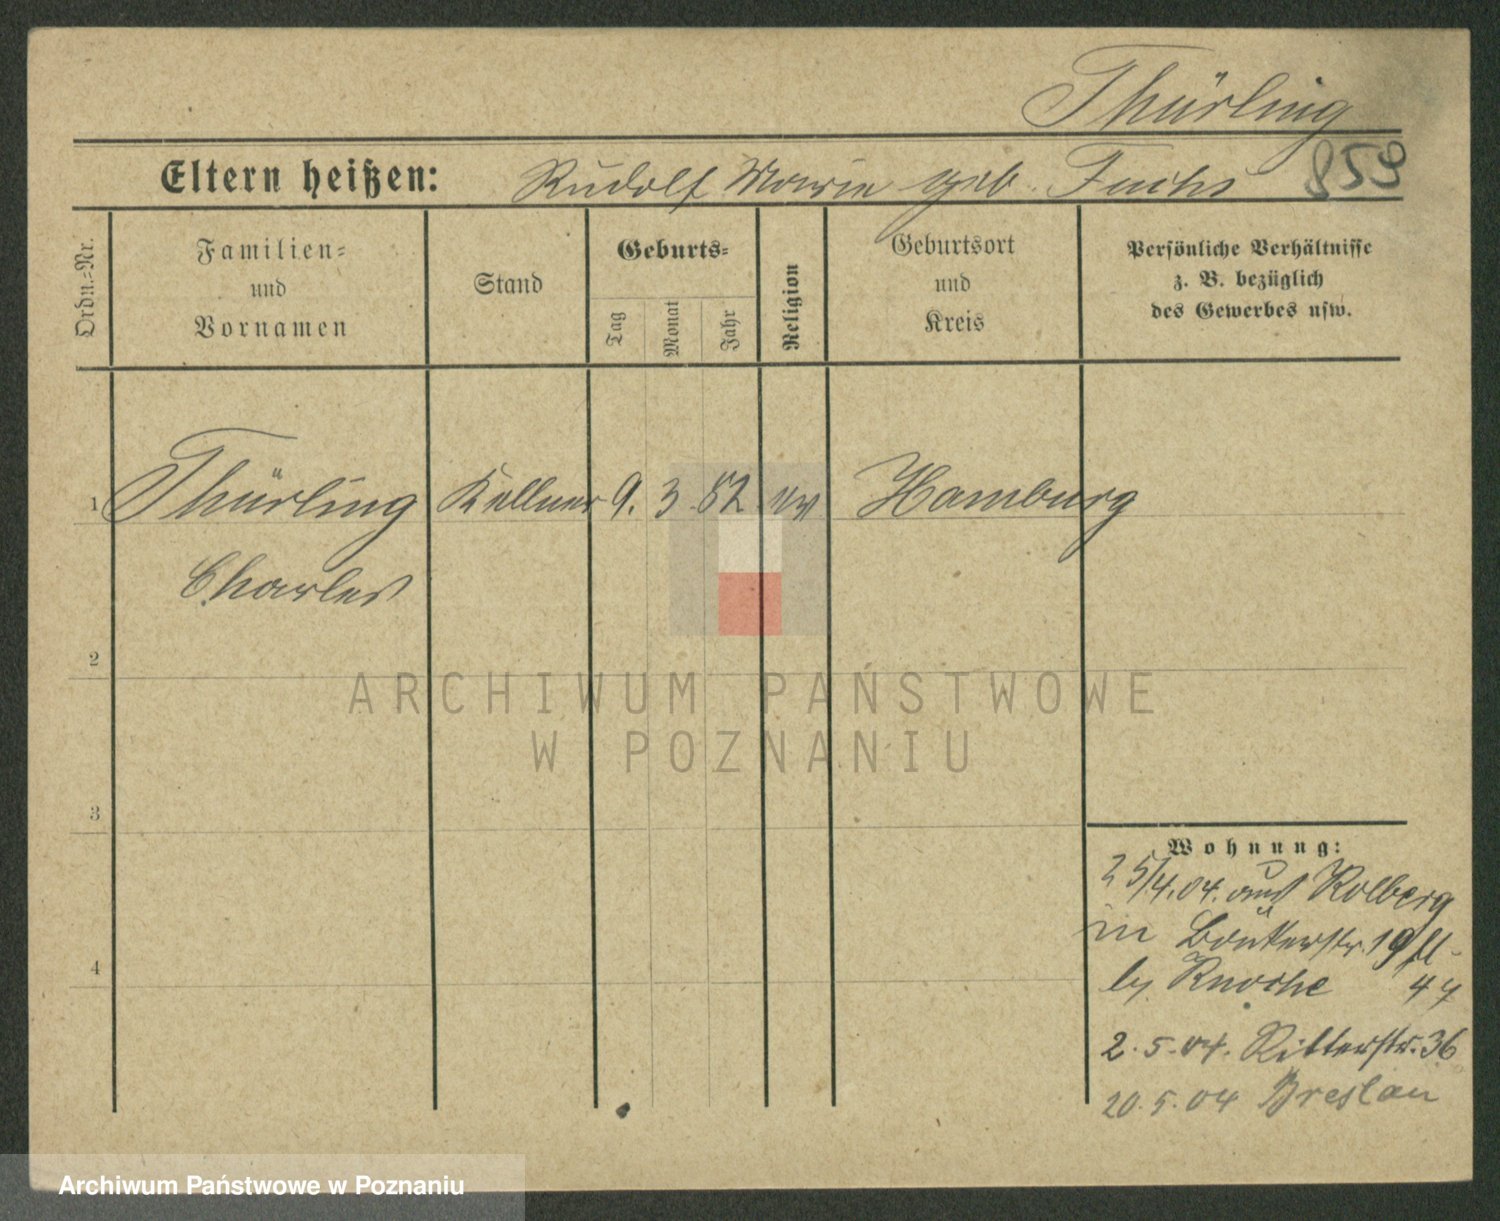 Thürling
Eltern heißen: Rudolf Marie geb. Fuchs 859
Ordn.=Nr.
Familien=
und
Vornamen
Stand
Geburts=
Tag
Monat
Jahr
Religion
Geburtsort
und
Kreis
Persönliche Verhältnisse
z. B. bezüglich
des Gewerbes usw.
1 Thürling Kellner 9. 3. 82 ev Hamburg
Charles
2
3
4
Wohnung:
25/4.04. aus Kolberg
in 19
by Knoche
2.5.04. Ritterstr. 36
20.5.04 Breslau
ARCHIWUM PAŃSTWOWE
W POZNANIU
Archiwum Państwowe w Poznaniu